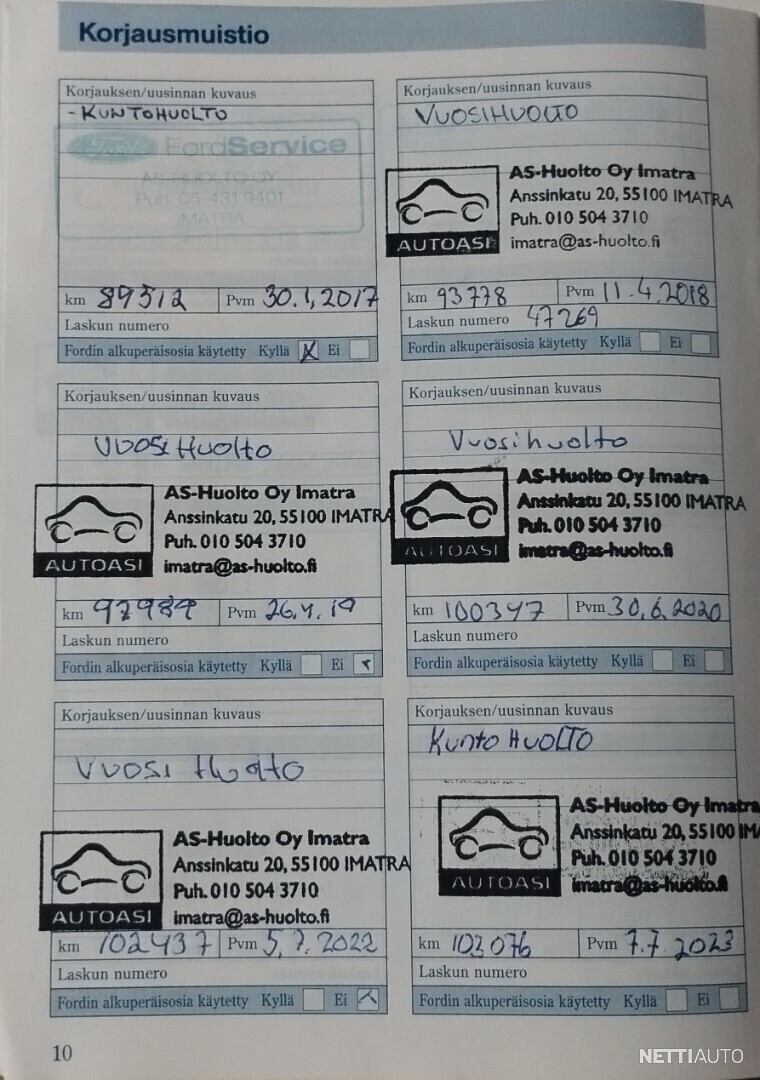 Korjausmuistio
Korjauksen/uusinnan kuvaus
- KUNTOHUOLTO
Ford FordService
AS-HUOLTO OY
Puh. 05-431 9401
IMATRA
km 89512 Pvm 30.1.2017
Laskun numero
Fordin alkuperäisosia käytetty Kyllä X Ei
Korjauksen/uusinnan kuvaus
VUOSIHUOLTO
AUTOASI
AS-Huolto Oy Imatra
Anssinkatu 20, 55100 IMATRA
Puh. 010 504 3710
imatra@as-huolto.fi
km 93778 Pvm 11.4.2018
Laskun numero 47269
Fordin alkuperäisosia käytetty Kyllä Ei
Korjauksen/uusinnan kuvaus
VUOSI HUOLTO
AUTOASI
AS-Huolto Oy Imatra
Anssinkatu 20, 55100 IMATRA
Puh. 010 504 3710
imatra@as-huolto.fi
km 97984 Pvm 26.4.19
Laskun numero
Fordin alkuperäisosia käytetty Kyllä Ei
Korjauksen/uusinnan kuvaus
Vuosihuolto
AUTOASI
AS-Huolto Oy Imatra
Anssinkatu 20, 55100 IMATRA
Puh. 010 504 3710
imatra@as-huolto.fi
km 100347 Pvm 30.6.2020
Laskun numero
Fordin alkuperäisosia käytetty Kyllä Ei
Korjauksen/uusinnan kuvaus
VUOSI HUOLTO
AUTOASI
AS-Huolto Oy Imatra
Anssinkatu 20, 55100 IMATRA
Puh. 010 504 3710
imatra@as-huolto.fi
km 102437 Pvm 5.7.2022
Laskun numero
Fordin alkuperäisosia käytetty Kyllä Ei
Korjauksen/uusinnan kuvaus
Kunto HUOLTO
AUTOASI
AS-Huolto Oy Imatra
Anssinkatu 20, 55100 IM
Puh. 010 504 3710
imatra@as-huolto.fi
km 103076 Pvm 7.7.2023
Laskun numero
Fordin alkuperäisosia käytetty Kyllä Ei
10
NETTIAUTO